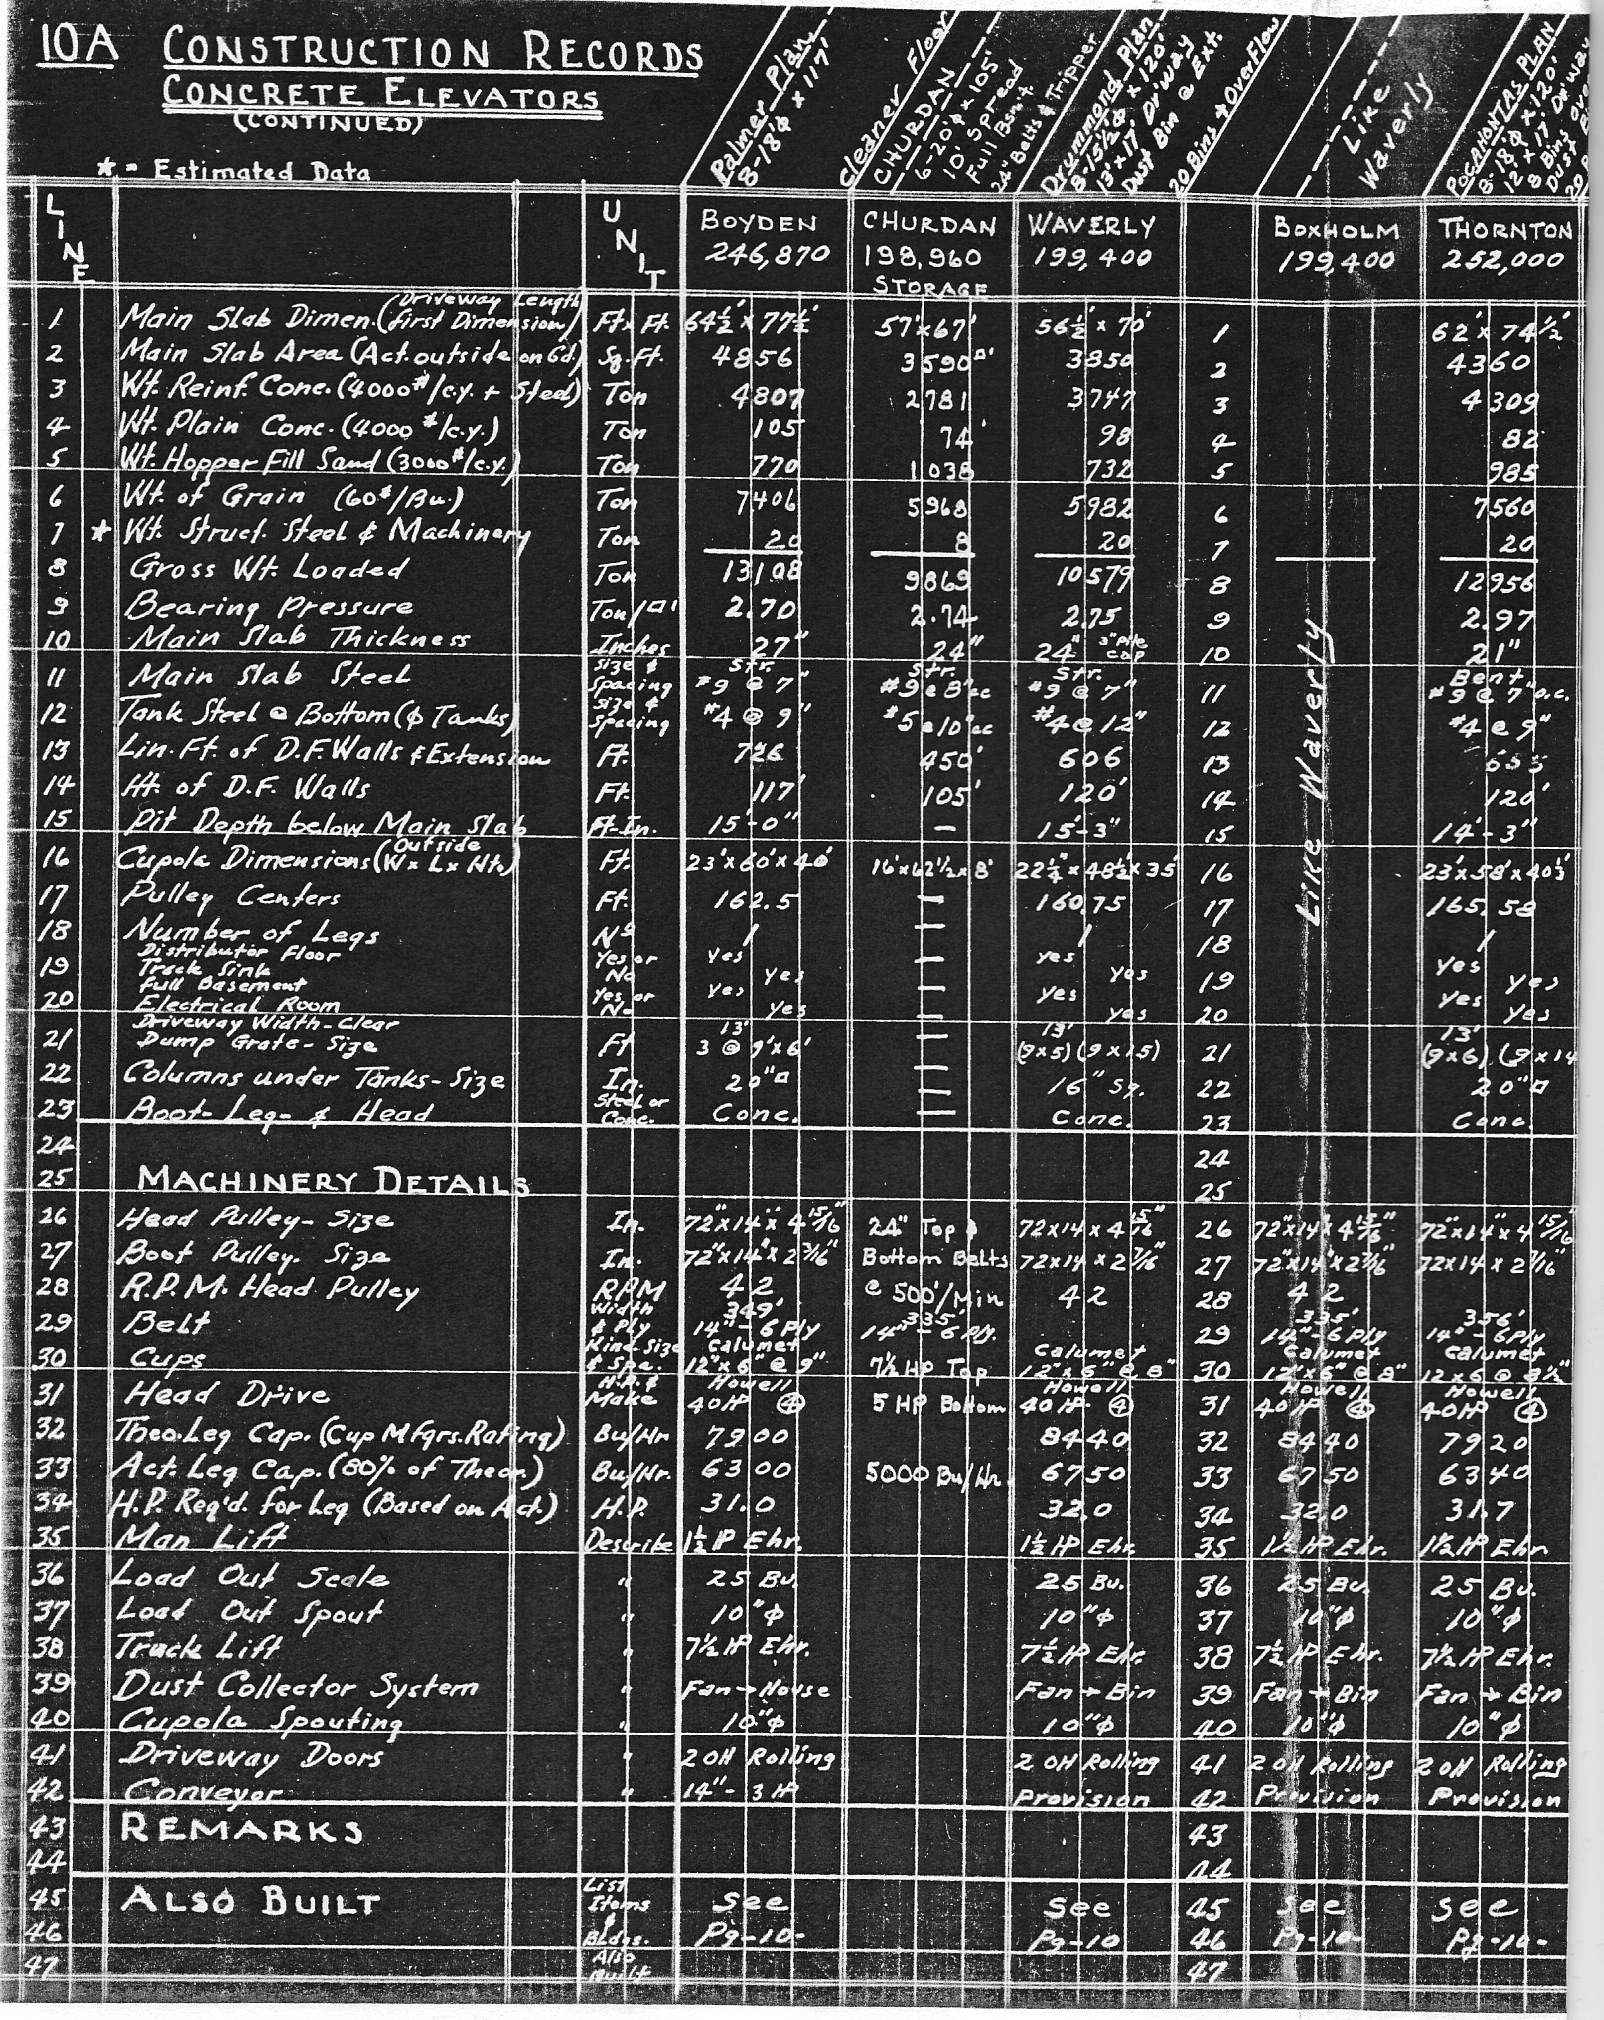 10A CONSTRUCTION RECORDS
CONCRETE ELEVATORS
(CONTINUED)
* - Estimated Data
Palmer Plan
8-18'φ x 117'
Cleaner Floor
CHURDAN
6-20'φ x 105'
10' Spread
Full Bsmt
24" Belts & Tripper
Drummond Plan
8-15½'φ x 120'
13' x 17' Driveway
Dust Bin @ Ext.
20 Bins & OverFlow
Like
Waverly
POCAHONTAS PLAN
8-18'φ x 120'
12' x 17' Driveway
8 Bins over
Dust
20
LINE UNIT BOYDEN CHURDAN WAVERLY BOXHOLM THORNTON
246,870 198,960 199,400 199,400 252,000
STORAGE
1 Main Slab Dimen. (Driveway Length First Dimension) Ft x Ft. 64½' x 77½' 57' x 67' 56½' x 70' 1 62' x 74½'
2 Main Slab Area (Act. outside on Gd.) Sq. Ft. 4856 3590□' 3850 2 4360
3 Wt. Reinf. Conc. (4000#/c.y. + Steel) Ton 4807 2781 3747 3 4309
4 Wt. Plain Conc. (4000#/c.y.) Ton 105 74 98 4 82
5 Wt. Hopper Fill Sand (3000#/c.y.) Ton 770 1038 732 5 985
6 Wt. of Grain (60#/Bu.) Ton 7406 5968 5982 6 7560
7 * Wt. Struct. Steel & Machinery Ton 20 8 20 7 20
8 Gross Wt. Loaded Ton 13108 9869 10579 8 12956
9 Bearing Pressure Ton/□' 2.70 2.74 2.75 9 2.97
10 Main Slab Thickness Inches 27" 24" 24" 3" pile cap 10 21"
11 Main Slab Steel Size & Spacing Str. #9 @ 7" Str. #9 @ 8" cc Str. #9 @ 7" 11 Bent #9 @ 7" o.c.
12 Tank Steel @ Bottom (φ Tanks) Size & Spacing #4 @ 9" #5 @ 10" cc #4 @ 12" 12 #4 @ 9"
13 Lin. Ft. of D.F. Walls & Extension Ft. 726 450' 606 13
14 Ht. of D.F. Walls Ft. 117' 105' 120' 14 120'
15 Pit Depth below Main Slab Ft-In. 15'-0" — 15'-3" 15 14'-3"
16 Cupola Dimensions (Outside W x L x Ht.) Ft. 23' x 60' x 40' 16' x 62½ x 8' 22¼' x 48½' x 35' 16 23' x 58' x 40½'
17 Pulley Centers Ft. 162.5 — 160.75 17 165.58
18 Number of Legs No 1 — 1 18 1
19 Distributor Floor Yes or Yes — yes Yes
Truck Sink No yes yes 19 yes
20 Full Basement Yes or Yes — Yes Yes
Electrical Room No yes — yes 20 yes
21 Driveway Width-Clear 13' — 13' 13'
Dump Grate-Size Ft 3 @ 9'x6' — (9x5) (9x15) 21 (9x6) (9x14
22 Columns under Tanks-Size In. 20"□ — 16" Sq. 22 20"□
23 Boot-Leg- & Head Steel or Conc. Conc. — Conc. 23 Conc.
Like Waverly
24 24
25 MACHINERY DETAILS 25
26 Head Pulley-Size In. 72"x14"x4 15/16" 24" Top & 72x14x4 15/16" 26 72"x14"x4 15/16" 72"x14"x4 15/16"
27 Boot Pulley. Size In. 72"x14"x2 7/16" Bottom Belts 72x14x2 7/16" 27 72"x14"x2 7/16" 72x14x2 7/16"
28 R.P.M. Head Pulley RPM 42 @ 500'/Min 42 28 42
29 Belt Width & Ply 349' 14"-6 Ply 335' 14"-6 Ply. 29 335' 14"-6 Ply 356' 14"-6Ply
30 Cups Kind Size & Spa. Calumet 12"x6" @ 9" 7½ HP Top Calumet 12"x6" @ 8" 30 Calumet 12"x6" @ 8" Calumet 12x6 @ 8½"
31 Head Drive H.P. & Make Howell 40 HP ④ 5 HP Bottom Howell 40 HP. ④ 31 Howell 40 HP ④ Howell 40HP ④
32 Theo. Leg Cap. (Cup Mfgrs. Rating) Bu/Hr 7900 8440 32 8440 7920
33 Act. Leg Cap. (80% of Theor.) Bu/Hr. 6300 5000 Bu/Hr. 6750 33 6750 6340
34 H.P. Req'd. for Leg (Based on Act.) H.P. 31.0 32.0 34 32.0 31.7
35 Man Lift Describe 1½ HP Ehr. 1½ HP Ehr. 35 1½ HP Ehr. 1½ HP Ehr
36 Load Out Scale " 25 Bu. 25 Bu. 36 25 Bu. 25 Bu.
37 Load Out Spout " 10"φ 10"φ 37 10"φ 10"φ
38 Truck Lift " 7½ HP Ehr. 7½ HP Ehr. 38 7½ HP Ehr. 7½ HP Ehr.
39 Dust Collector System " Fan → House Fan → Bin 39 Fan → Bin Fan → Bin
40 Cupola Spouting " 10"φ 10"φ 40 10"φ 10"φ
41 Driveway Doors " 2 OH Rolling 2 OH Rolling 41 2 OH Rolling 2 OH Rolling
42 Conveyor " 14"-3 HP Provision 42 Provision Provision
43 REMARKS 43
44 44
45 ALSO BUILT List Items See See 45 See See
46 & Bldgs. Pg-10- Pg-10 46 Pg-10- Pg-10-
47 Also Built 47